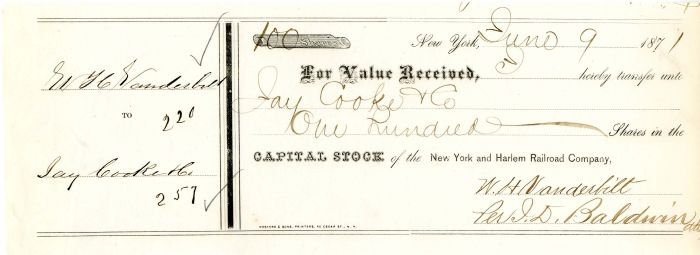 W H Vanderbilt
TO
220
Jay Cooke & Co
257
100 Shares
New York, June 9 1871
For Value Received, hereby transfer unto
Jay Cooke & Co
One Hundred Shares in the
CAPITAL STOCK of the New York and Harlem Railroad Company,
W. H Vanderbilt
Per J. D. Baldwin atty
HOSFORD & SONS, PRINTERS, 59 CEDAR ST., N. Y.